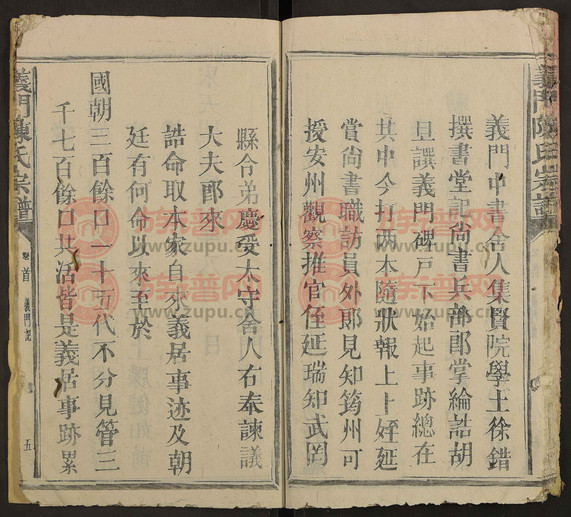 義門陳氏宗譜
義門中書舍人集賢院學士徐錯
撰書堂記尚書兵部郎掌綸誥胡
旦譔義門碑戸下始起事跡總在
其中今打两本隨狀報上上姪延
賞尚書職訪員外郎見知筠州可
授安州觀察推官侄延瑞知武岡
縣令弟慶受太守舍人右奉諫議
大夫郎來
誥命取本家自來義居事迹及朝
廷有何命以來至於
國朝三百餘口一十五代不分見管三
千七百餘口共活皆是義居事跡累
義門陳氏宗譜
首
義門記
五
族譜网
www.zupu.cn
族譜网
www.zupu.cn
族譜网
www.zupu.cn
族譜网
www.zupu.cn